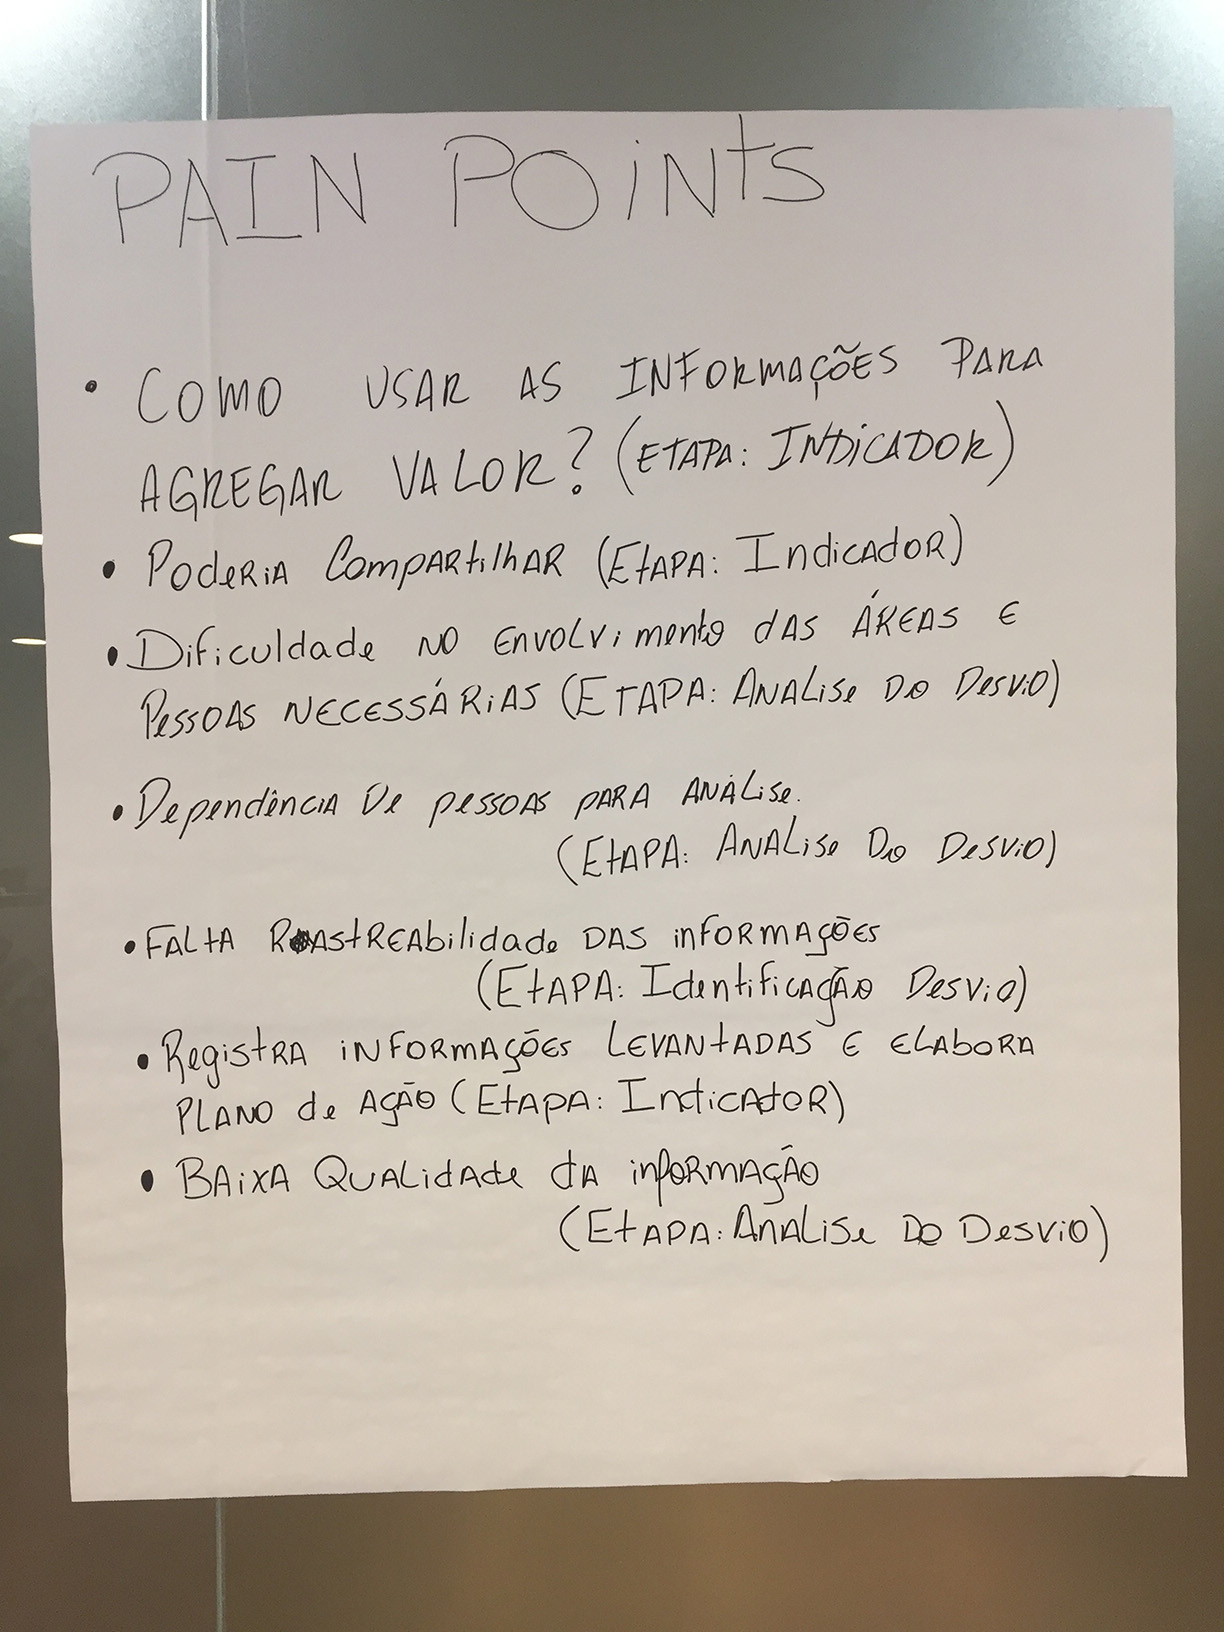 PAIN POINTS
• COMO USAR AS INFORMAÇÕES PARA
AGREGAR VALOR? (ETAPA: INDICADOR)
• Poderia Compartilhar (Etapa: Indicador)
• Dificuldade no envolvimento das áreas e
pessoas necessárias (Etapa: Analise do Desvio)
• Dependência de pessoas para análise.
(Etapa: Analise do Desvio)
• Falta Rastreabilidade das informações
(Etapa: Identificação Desvio)
• Registra informações levantadas e elabora
plano de ação (Etapa: Indicador)
• Baixa Qualidade da informação
(Etapa: Analise do Desvio)